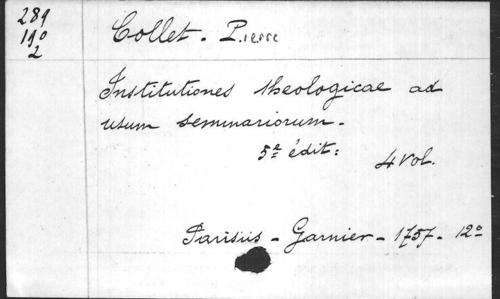 289
190
2
Collet - Pierre
Institutiones theologicae ad
usum seminariorum -
5e édit:
4 vol.
Parisiis - Garnier - 1757 - 12o